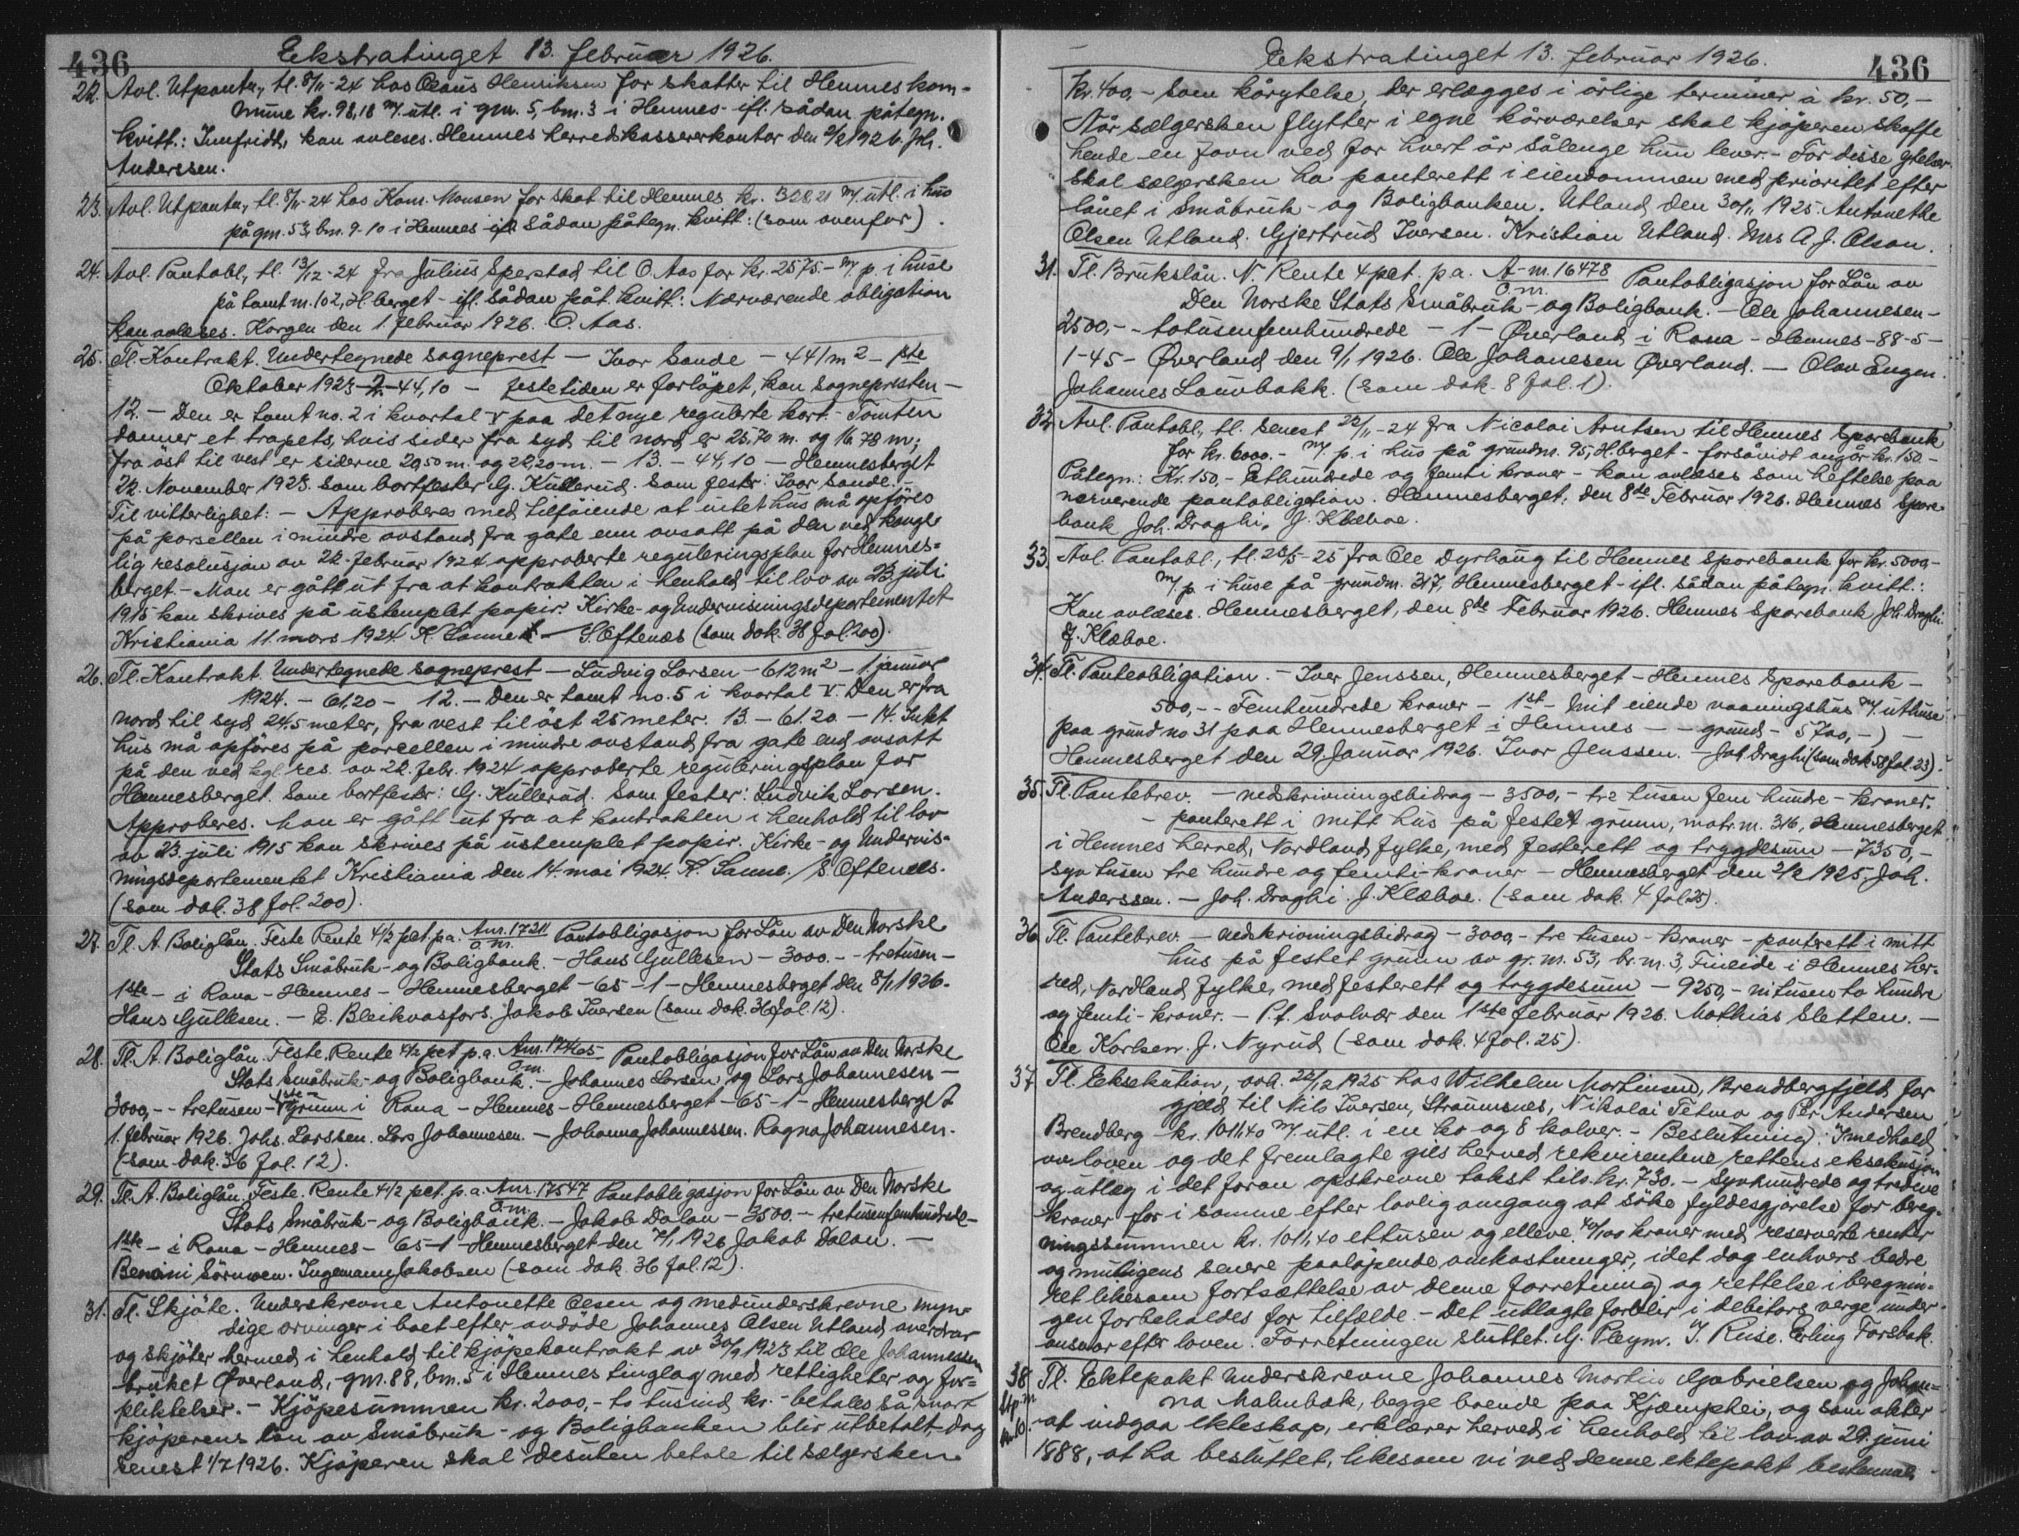 436
Ekstratinget 13. februar 1926.
22. Avl. Utpantn, tl. 8/11-24 hos Claus Henriksen for skatter til Hemnes kom-
mune kr. 98,18 m/ utl. i gnr. 5, bnr. 3 i Hemnes - ifl. sådan påtegn.
kvitt.: Innfridt, kan avleses. Hemnes herredskassererkontor den 2/2 1926. Joh.
Anderssen.
23. Avl. Utpantn, tl. 8/11-24 hos Konr. Monsen for skat til Hemnes kr. m/ utl. i hus
på gnr. 53, bnr. 9-10 i Hemnes ifl. sådan påtegn. kvitt: (som ovenfor).
24. Avl. Pantobl, tl. 13/12-24 fra Julius Sperstad til O. Aas for kr. 2575.- m/ p. i huse
på tomt nr. 102, H.berget - ifl. sådan påt. kvitt: Nærværende obligation
kan avleses. Korgen den 1 februar 1926. O. Aas.
25. Tl. Kontrakt. Undertegnede sogneprest - Ivar Sande - 441 m2 - 1ste
Oktober 1923 - 44,10 - festetiden er forløpet, kan sognepresten -
12. - Den er tomt no. 2 i kvartal V paa det nye regulerte kart. Tomten
danner et trapets, hvis sider fra syd til nord er 25,70 m. og 16,78 m;
fra öst til vest er siderne 20,50 m. og 22,20 m. - 13. - 44,10 - Hemnesberget
22. November 1923. Som bortfester G. Kullerud. Som fester: Ivar Sande. -
Til vitterlighet: - Approberes med tilföiende at intet hus må opföres
på parsellen i mindre avstand fra gate enn avsatt på den ved konge-
lig resolusjon av 22. februar 1924 approberte reguleringsplan for Hemnes-
berget. - Man er gått ut fra at kontrakten i henhold til lov av 23. juli
1915 kan skrives på ustemplet papir. Kirke- og Undervisningsdepartementet
Kristiania 11. mars 1924 K. Sanne - S. Oftenæs (som dok. 38 fol. 200).
26. Tl. Kontrakt. Undertegnede sogneprest - Ludvig Larsen - 612 m2 - 1 januar
1924. - 61,20 - 12. - Den er tomt no. 5 i kvartal V. Den er fra
nord til syd 24,5 meter, fra vest til öst 25 meter. 13. - 61.20 - 14. Intet
hus må opföres på parcellen i mindre avstand fra gate end avsatt
på den ved kgl. res. av 22. febr. 1924 approberte reguleringsplan for
Hemnesberget. Som bortfester: G. Kullerud. Som fester: Ludvik Larsen.
Approberes. Man er gått ut fra at kontrakten i henhold til lov
av 23. juli 1915 kan skrives på ustemplet papir. Kirke- og Undervis-
ningsdepartementet Kristiania den 14. mai 1924. K. Sanne. / S. Oftenæs.
(som dok. 38 fol. 200).
27. Tl. A. Boliglån. Feste Rente 4 1/2 pct. p.a. Anr. 17211 o.m. Pantobligasjon for Lån av Den Norske
Stats Småbruk- og Boligbank. - Hans Gullesen - 3000.- - tretusen -
1ste - i Rana - Hemnes - Hemnesberget - 65 - 1 - Hemnesberget den 8/1 1926.
Hans Gullesen. - E. Bleikvasfors. Jakob Iversen (som dok. 36 fol. 12).
28. Tl. A. Boliglån. Feste. Rente 4 1/2 pct p.a. Anr. 17465 o.m. Pantobligasjon for Lån av Den Norske
Stats Småbruk- og Boligbank. - Johannes Larsen og Lars Johannesen -
3000,- - tretusen - 1ste - Grunn i Rana - Hemnes - Hemnesberget - 65 - 1 - Hemnesberget
1. februar 1926. Johs. Larssen. Lars Johannesen. - Johanna Johannessen. Ragna Johannesen.
(som dok. 36 fol. 12).
29. Tl. A. Boliglån. Feste. Rente 4 1/2 pct. p.a. Anr. 17547 o.m. Pantobligasjon for Lån av Den Norske
Stats Småbruk- og Boligbank. - Jakob Dalan - 3500.- - tretusenfemhundrede -
1ste - i Rana - Hemnes - 65-1 - Hemnesberget den 1926 Jakob Dalan. -
Benoni Ingemann Jakobsen (som dok. 36 fol. 12).
31. Tl. Skjöte. Underskrevne Antonette Olsen og medunderskrevne myn-
dige arvinger i boet efter avdöde Johannes Olsen Utland, overdrar
og skjöter hermed i henhold til kjöpekontrakt av 30/9 1923 til Ole Johannessen
bruket Øverland, gnr. 88, bnr. 5 i Hemnes tinglag med rettigheter og for-
pliktelser. - Kjöpesummen kr. 2000,- to tusind kr. - betales så snart
kjöperens lån av Småbruk- og Boligbanken blir utbetalt, dog
senest 1/7 1926. Kjöperen skal desuten betale til sælgersken
Ekstratinget 13. februar 1926.
436
kr. 400,- som kårytelse, der erlægges i årlige terminer à kr. 50,-
Når sælgersken flytter i egne kårværelser skal kjöperen skaffe
hende en favn ved for hvert år sålenge hun lever. - For disse ytelser
skal sælgersken ha panterett i eiendommen med prioritet efter
lånet i Småbruk- og Boligbanken. Utland, den 30/11 1925. Antonette
Olsen Utland. Gjertrud Iversen. Kristian Utland. Mrs A. J. Olson.
31. Tl. Brukslån. N. Rente 4 pct. p.a. A-nr. 16478 o.m. Pantobligasjon for Lån av
Den Norske Stats Småbruk- og Boligbank. - Ole Johannesen -
2500,- - totusenfemhundrede - 1 - Øverland, i Rana - Hemnes - 88-5 -
1-45 - Øverland den 9/1 1926. Ole Johanesen Øverland. - Olav Engen.
Johannes Lauvbakk. (som dok. 8 fol. 1).
32. Avl. Pantobl, tl. senest 22/11-24 fra Nicolai Arntsen til Hemnes Sparebank
for kr. 6000.- m/ p. i hus på grundnr. 95, H.berget - forsåvidt angår kr. 150.-
Påtegn.: Kr. 150,- Ethundrede og femti kroner - kan avlæses som heftelse paa
nærværende pantobligation. Hemnesberget, den 8de Februar 1926. Hemnes Spare-
bank Joh. Draghi. J. Klæboe.
33. Avl. Pantobl., tl. 28/5-25 fra Ole Dyrhaug til Hemnes Sparebank for kr. 5000,-
m/ p. i huse på grundnr. 317, Hemnesberget - ifl. sådan påtegn. kvitt.:
Kan avleses. Hemnesberget, den 8de Februar 1926. Hemnes Sparebank, Joh. Draghi.
J. Klæboe.
34. Tl. Panteobligation. - Ivar Jenssen, Hemnesberget - Hemnes Sparebank -
500,- - Femhundrede kroner - 1st - mit eiende vaaningshus m/ uthuse
paa grund no 31 paa Hemnesberget i Hemnes - - grund - 5700,-) -
Hemnesberget den 29 Januar 1926. Ivar Jenssen. - Joh. Draghi (som dok. 58 fol. 23).
35. Tl. Pantebrev. - nedskrivningsbidrag - 3500,- tre tusen fem hundre - kroner.
- panterett i mitt hus på festet grunn, matr. nr. 316, Hemnesberget
i Hemnes herred, Nordland fylke, med festerett og trygdesum - 7350,-
syv tusen tre hundre og femti - kroner - Hemnesberget den 2/2 1925. Joh.
Anderssen. - Joh. Draghi. J. Klæboe. (som dok. 4 fol 25).
36. Tl. Pantebrev. - nedskrivningsbidrag - 3000,- tre tusen - kroner - panterett i mitt
hus på festet grunn av gr. nr. 53, br. nr. 3, Finneide i Hemnes her-
red, Nordland fylke, med festerett og trygdesum - 9250,- nitusen to hundre
og femti - kroner. - P.t. Svolvær den 1ste februar 1926. Mathias Sletten. -
Ole Karlsen. J. Nyrud (som dok. 4 fol. 25).
37. Tl. Eksekution, avh. 22/12 1925 hos Wilhelm Mortinsen, Brendbergfjeld, for
gjeld til Nils Iversen, Straumsnes, Nikolai Tetmo og Per Andersen
Brendberg - kr. 1011,40 m/ utl. i en ko og 8 kalver. - Beslutning: I medhold
av loven og det fremlagte gies herved rekvirentene rettens eksekusjon
og utlæg i det foran opskrevne takst tils. kr. 730.- Syvhundrede og tredive
kroner - for i samme efter lovlig omgang at söke fyldesgjörelse for bereg-
ningssummen kr. 1011,40 ettusen og elleve 40/100 kroner med reserverte renter
og muligens senere paalöpende omkostninger, idet dog enhvers bedre
ret likesom fortsættelse av denne forretning og rettelse i beregnin-
gen forbeholdes for tilfælde. - Det utlagte forblir i debitors verge under
ansvar efter loven. Forretningen sluttet. G. Pleym. I. Ruse. Erling Forsbak.
38. Tl. Ektepakt Underskrevne Johannes Martin Gabrielsen og Johan-
na Malmbak, begge boende paa Kjæmphei, og som akter
at indgaa ekteskap, erklærer herved, i henhold til lov av 29. juni
1888, at ha besluttet, likesom vi ved denne ektepakt bestemmer,